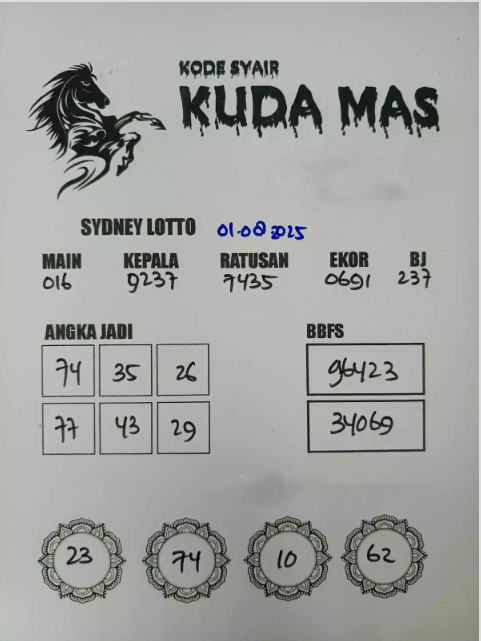 KODE SYAIR
KUDA MAS
SYDNEY LOTTO 01-08 2025
MAIN KEPALA RATUSAN EKOR BJ
016 9237 7435 0691 237
ANGKA JADI BBFS
74 35 26 96423
77 43 29 34069
23 74 10 62